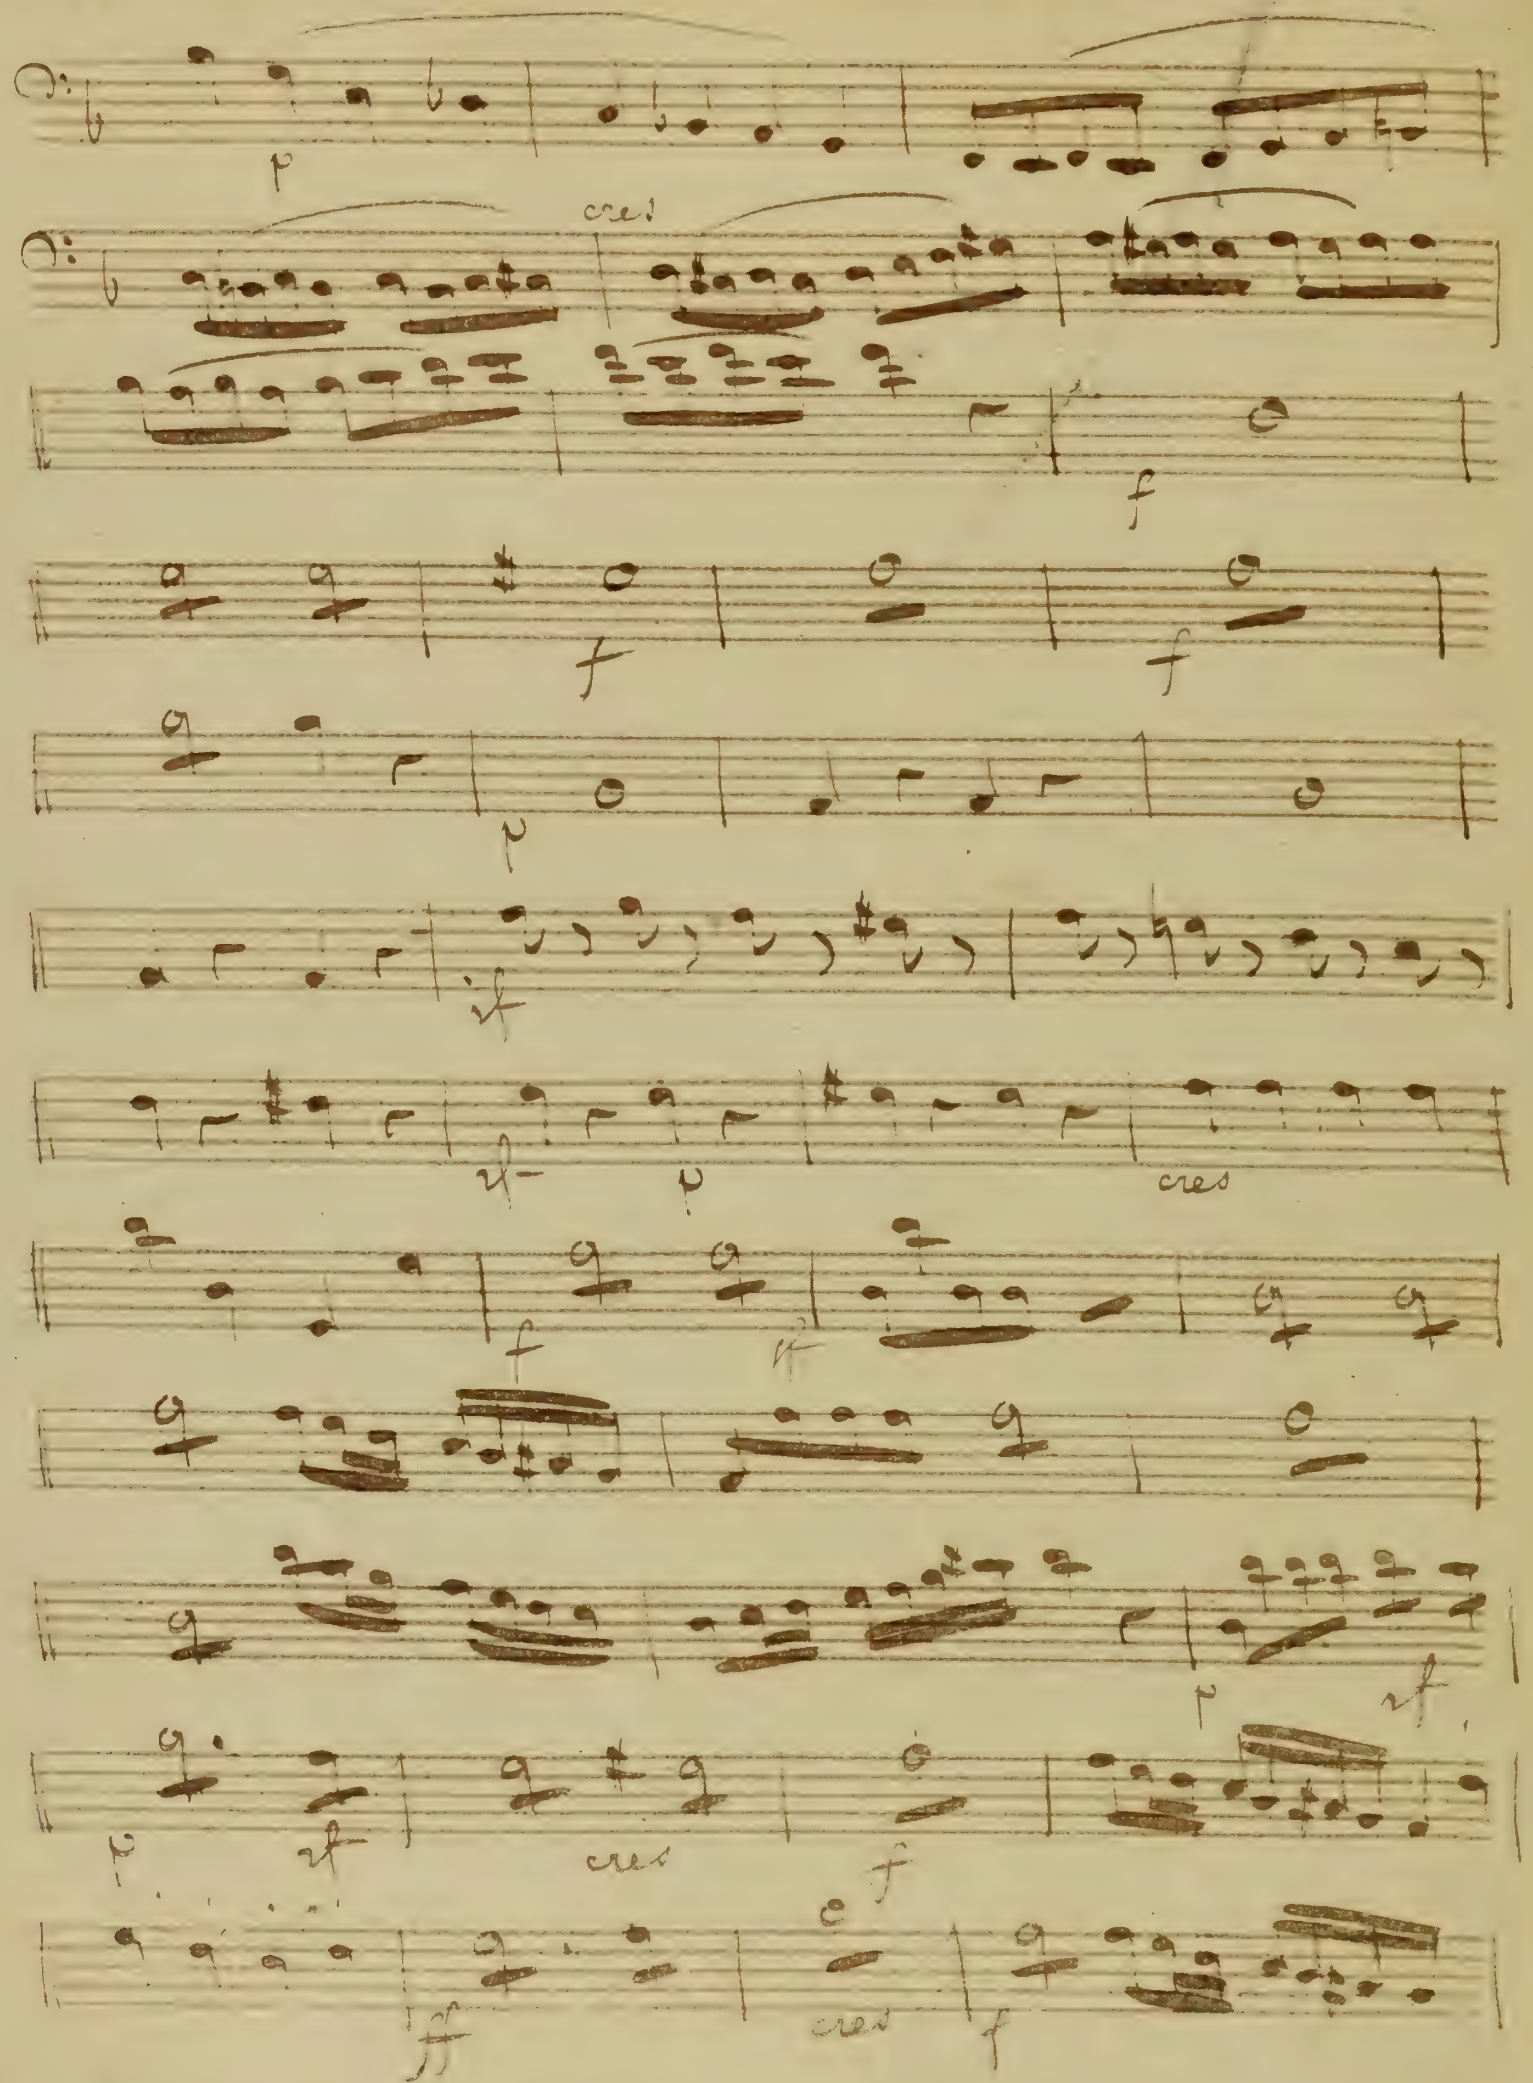 p
cres
f
f f
p
rf
rf p cres
f rf
p rf
p rf cres f
ff cres f